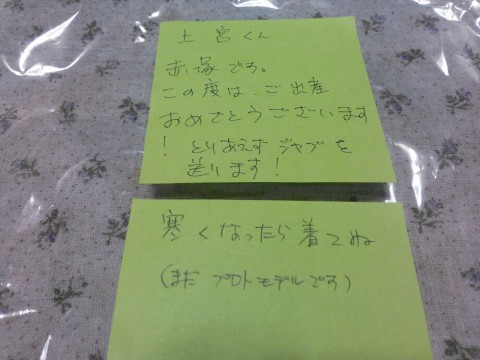 上宮くん
赤塚です。
この度は、ご出産
おめでとうございます
! とりあえずジャブを
送ります!
寒くなったら着てね
(まだ プロトモデルです)